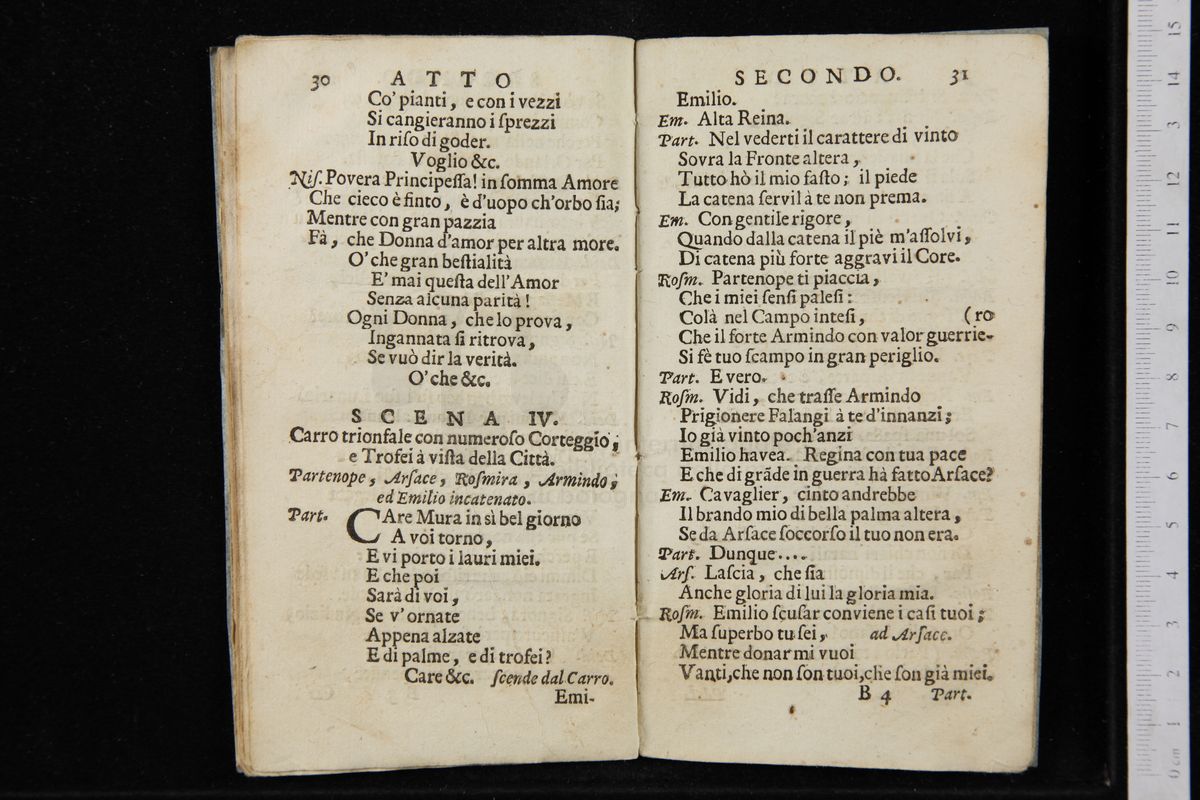 30 ATTO
Co' pianti, e con i vezzi
Si cangieranno i ſprezzi
In riſo di goder.
Voglio &c.
Niſ. Povera Principeſſa! in ſomma Amore
Che cieco è finto, è d'uopo ch'orbo ſia;
Mentre con gran pazzia
Fà, che Donna d'amor per altra more.
O' che gran beſtialità
E' mai queſta dell'Amor
Senza alcuna parità!
Ogni Donna, che lo prova,
Ingannata ſi ritrova,
Se vuò dir la verità.
O' che &c.
SCENA IV.
Carro trionfale con numeroſo Corteggio;
e Trofei à viſta della Città.
Partenope, Arſace, Roſmira, Armindo,
ed Emilio incatenato.
Part. CAre Mura in sì bel giorno
A voi torno,
E vi porto i lauri miei.
E che poi
Sarà di voi,
Se v' ornate
Appena alzate
E di palme, e di trofei?
Care &c. ſcende dal Carro.
Emi-
SECONDO. 31
Emilio.
Em. Alta Reina.
Part. Nel vederti il carattere di vinto
Sovra la Fronte altera,
Tutto hò il mio faſto; il piede
La catena ſervil à te non prema.
Em. Con gentile rigore,
Quando dalla catena il piè m'aſſolvi,
Di catena più forte aggravi il Core.
Roſm. Partenope ti piaccia,
Che i miei ſenſi paleſi:
Colà nel Campo inteſi, (ro
Che il forte Armindo con valor guerrie-
Si fè tuo ſcampo in gran periglio.
Part. E vero.
Roſm. Vidi, che traſſe Armindo
Prigionere Falangi à te d'innanzi;
Io già vinto poch'anzi
Emilio havea. Regina con tua pace
E che di grãde in guerra hà fatto Arſace?
Em. Cavaglier, cinto andrebbe
Il brando mio di bella palma altera,
Se da Arſace ſoccorſo il tuo non era.
Part. Dunque....
Arſ. Laſcia, che ſia
Anche gloria di lui la gloria mia.
Roſm. Emilio ſcuſar conviene i caſi tuoi;
Ma ſuperbo tu ſei, ad Arſace.
Mentre donar mi vuoi
Vanti, che non ſon tuoi, che ſon già miei.
B 4 Part.
0 cm 1 2 3 4 5 6 7 8 9 10 11 12 13 14 15